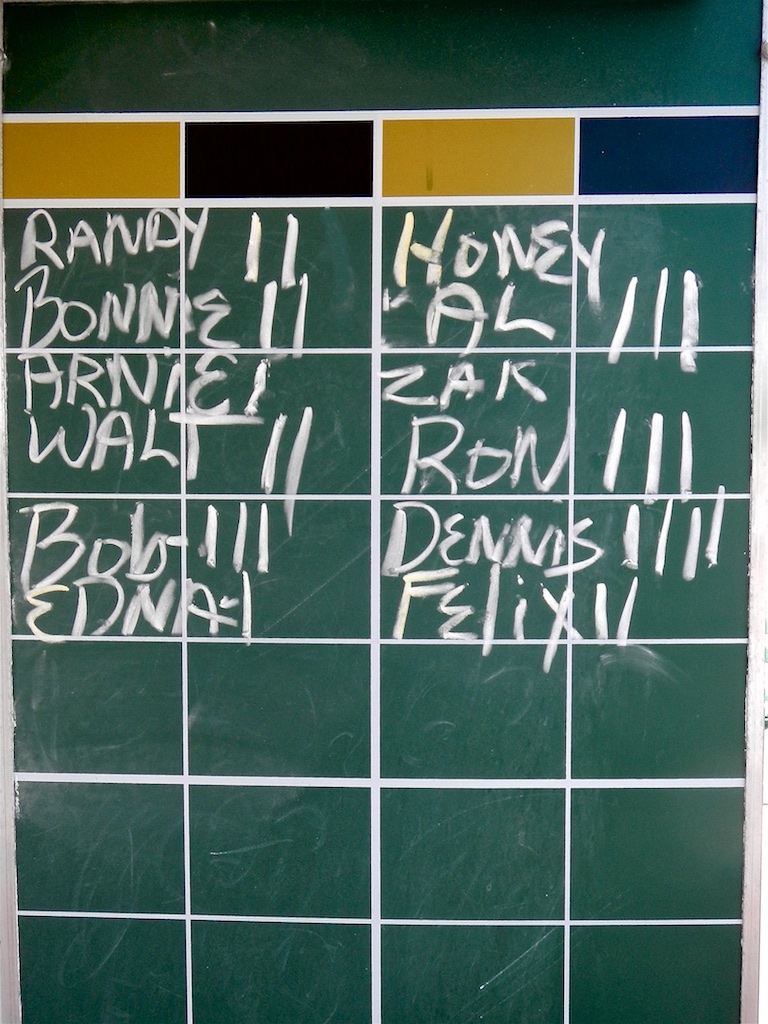 RANDY II
BONNIE II
ARNIE I
WALT II
BOB-III
EDNA-I
HONEY
-AL III
ZAK
RON III
DENNIS IIII
FELIX II